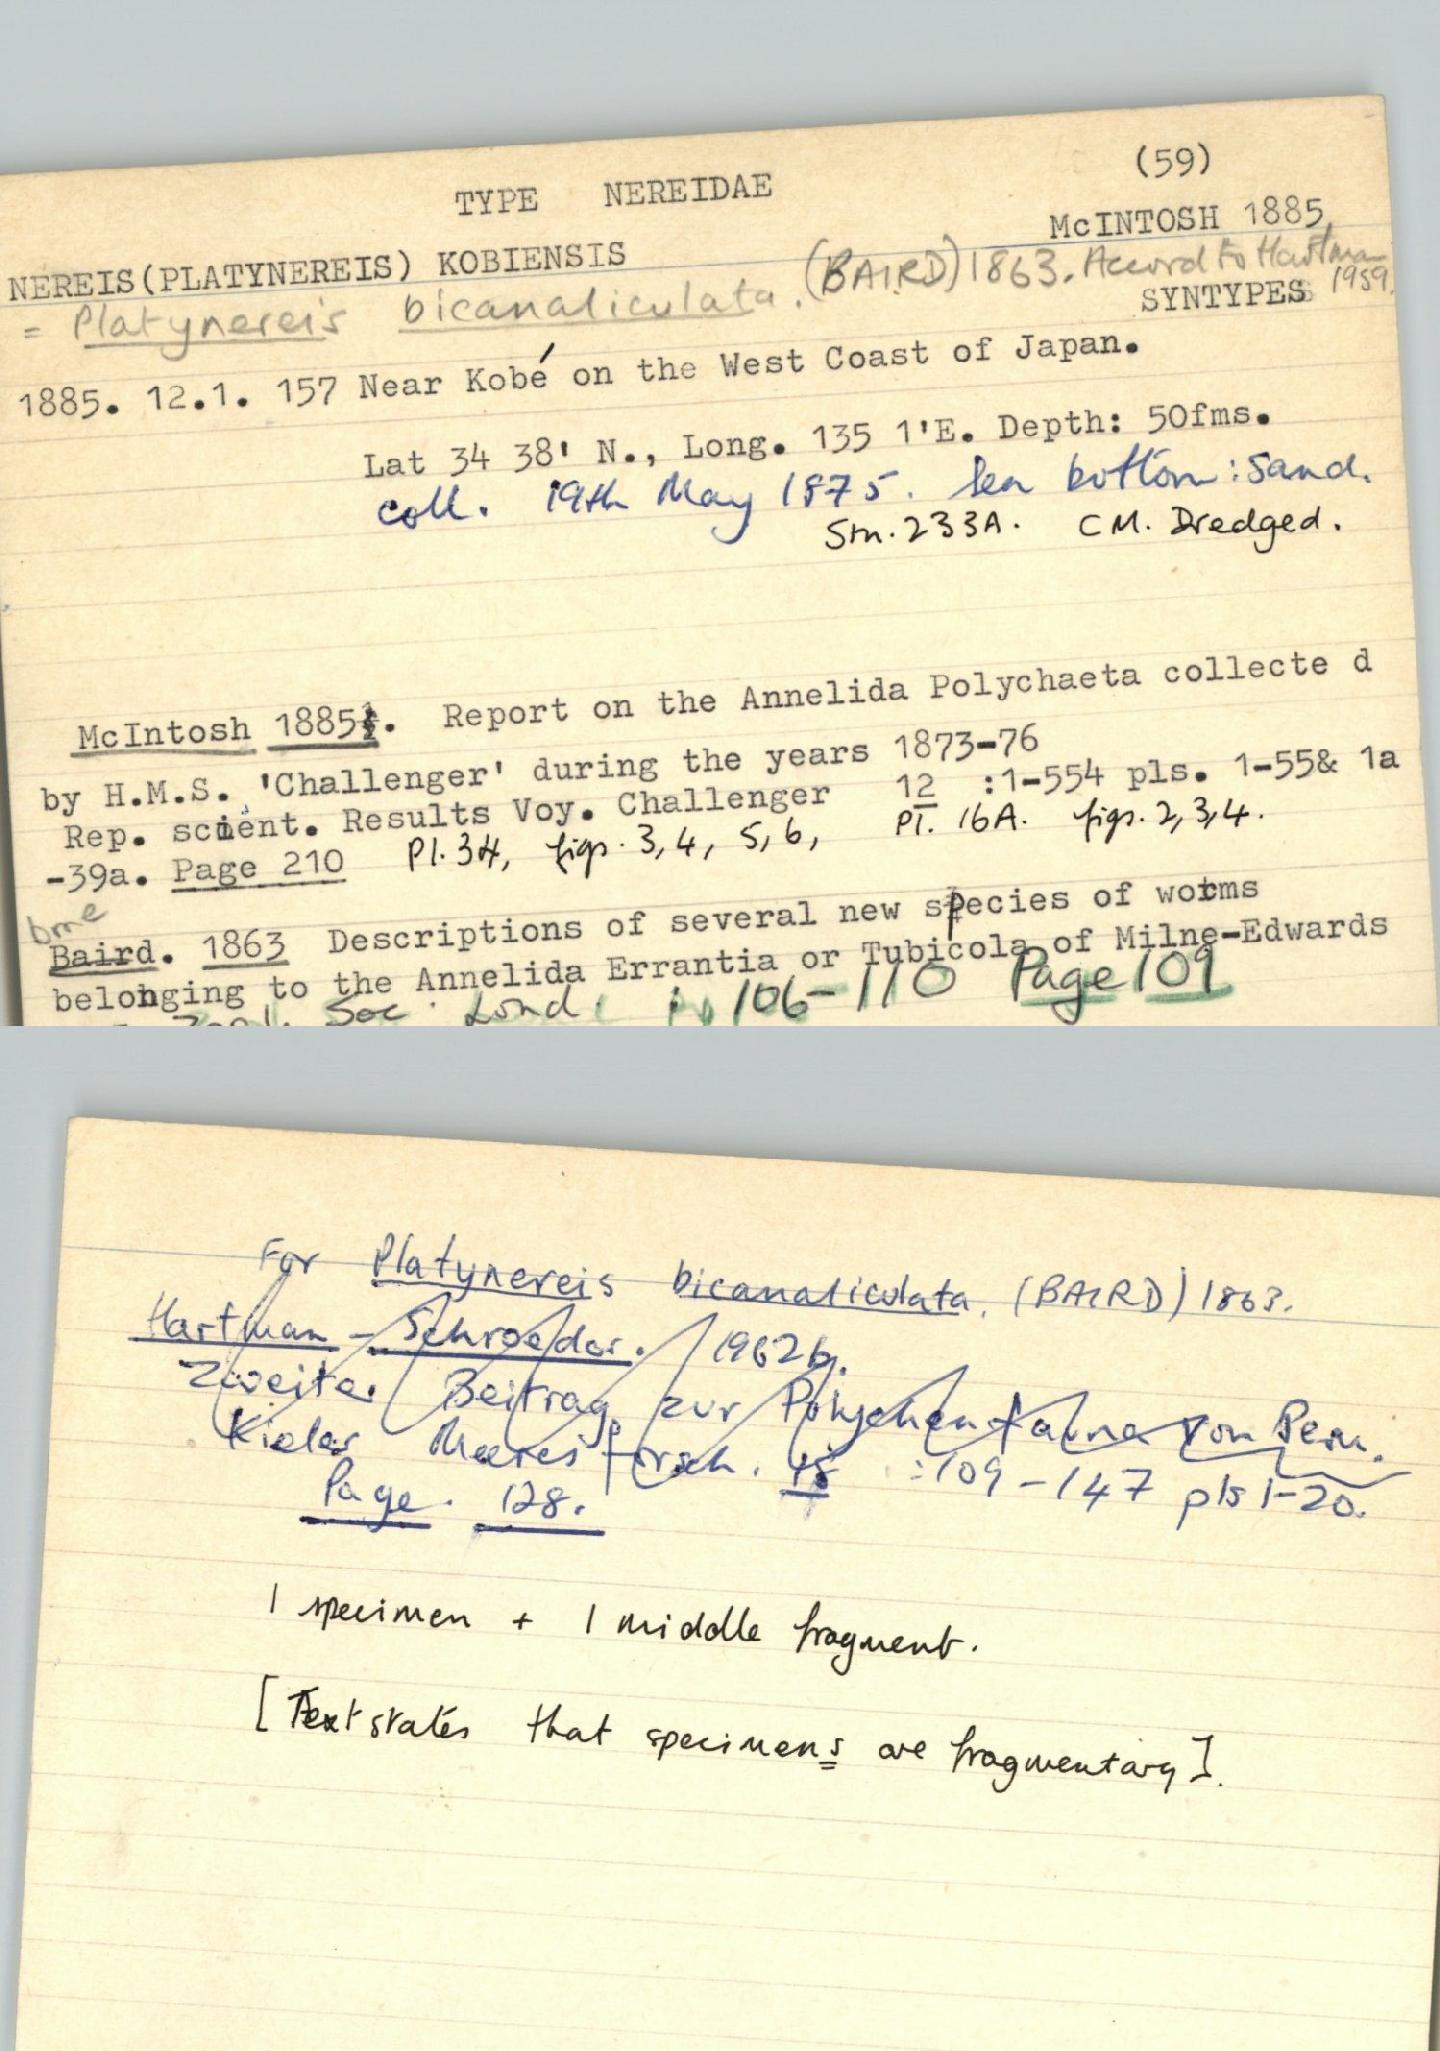 (59)
TYPE NEREIDAE
McINTOSH 1885
NEREIS(PLATYNEREIS) KOBIENSIS
= Platynereis bicanaliculata. (BAIRD) 1863. Accord to Hartman 1959.
SYNTYPES
1885. 12.1. 157 Near Kobé on the West Coast of Japan.
Lat 34 38' N., Long. 135 1'E. Depth: 50fms.
coll. 19th May 1875. Sea bottom: Sand.
Stn. 233A. CM. Dredged.
McIntosh 1885. Report on the Annelida Polychaeta collecte d
by H.M.S. 'Challenger' during the years 1873-76
Rep. scient. Results Voy. Challenger 12 :1-554 pls. 1-55& 1a
-39a. Page 210 Pl. 34, figs. 3, 4, 5, 6, Pl. 16A. figs. 2, 3, 4.
Baird. 1863 Descriptions of several new species of worms
belonging to the Annelida Errantia or Tubicola of Milne-Edwards
Zool. Soc. Lond. : 106-110 Page 109
For Platynereis bicanaliculata. (BAIRD) 1863.
Hartman - Schroeder. 1962b.
Zweiter Beitrag zur Polychaenfauna von Peru.
Kieler Meeresforsch. 18 :109-147 pls 1-20.
Page. 128.
1 specimen + 1 middle fragment.
[Text states that specimens are fragmentary].